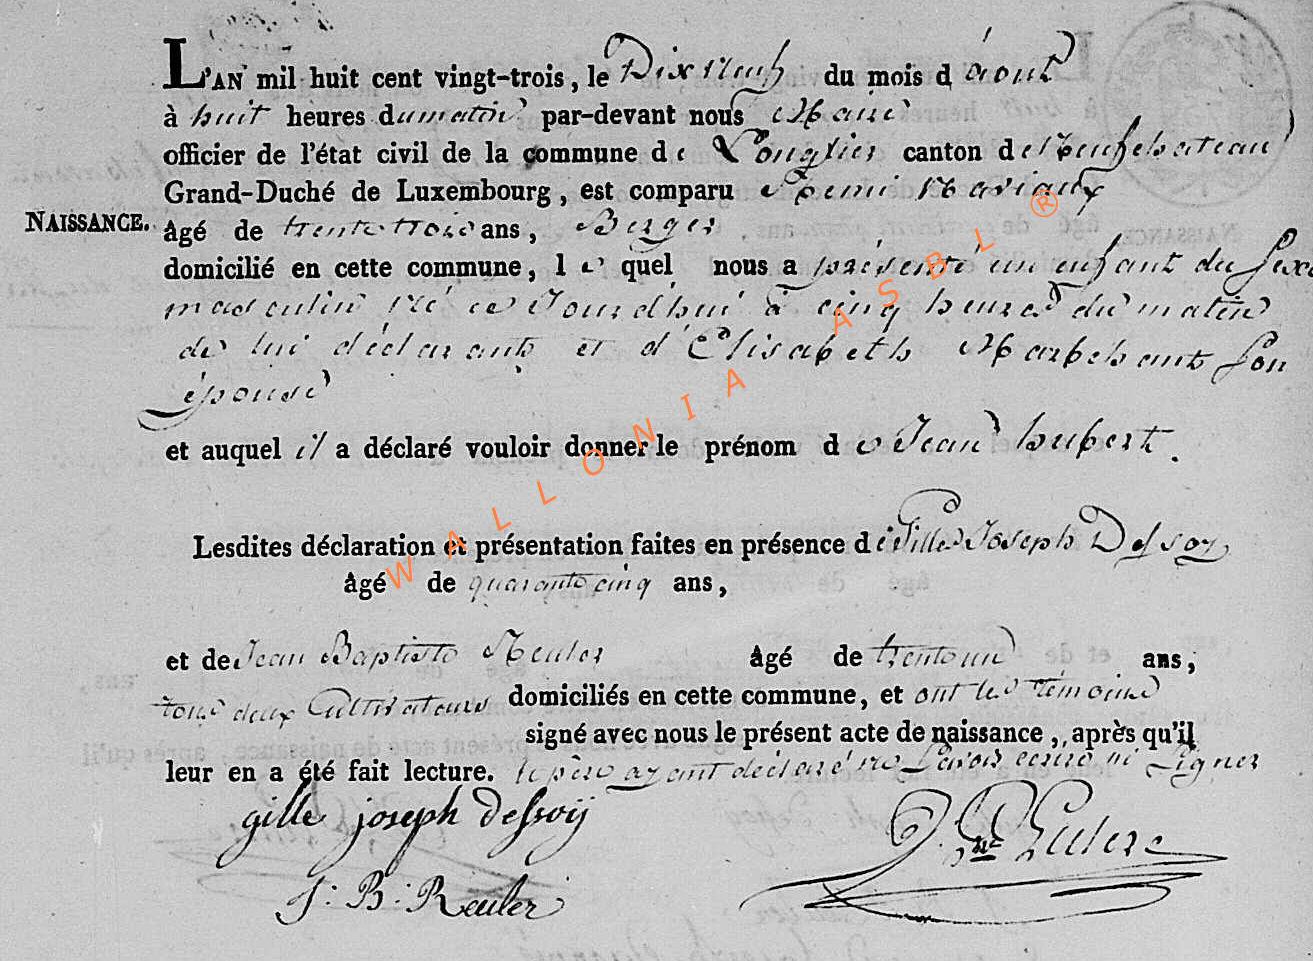 L'AN mil huit cent vingt-trois, le Dix neuf du mois d'aout
à huit heures du matin par-devant nous Maire
officier de l'état civil de la commune de Longlier canton de Neufchateau
Grand-Duché de Luxembourg, est comparu Remi Mariaux
NAISSANCE. âgé de trente trois ans, Berger
domicilié en cette commune, le quel nous a présenté un enfant du sexe
masculin né ce Jourdhui à cinq heures du matin
de lui déclarant et d'Elisabeth Marchant son
épouse
et auquel il a déclaré vouloir donner le prénom de Jean hubert.
Lesdites déclaration et présentation faites en présence de Gille Joseph Dessoy
âgé de quarante cinq ans,
et de Jean Baptiste Reuler âgé de trente un ans,
tous deux Cultivateurs domiciliés en cette commune, et ont les témoins
signé avec nous le présent acte de naissance, après qu'il
leur en a été fait lecture. le père ayant déclaré ne savoir ecrire ni signer
gille joseph Dessoij
J: B: Reuler
WALLONIA ASBL ®